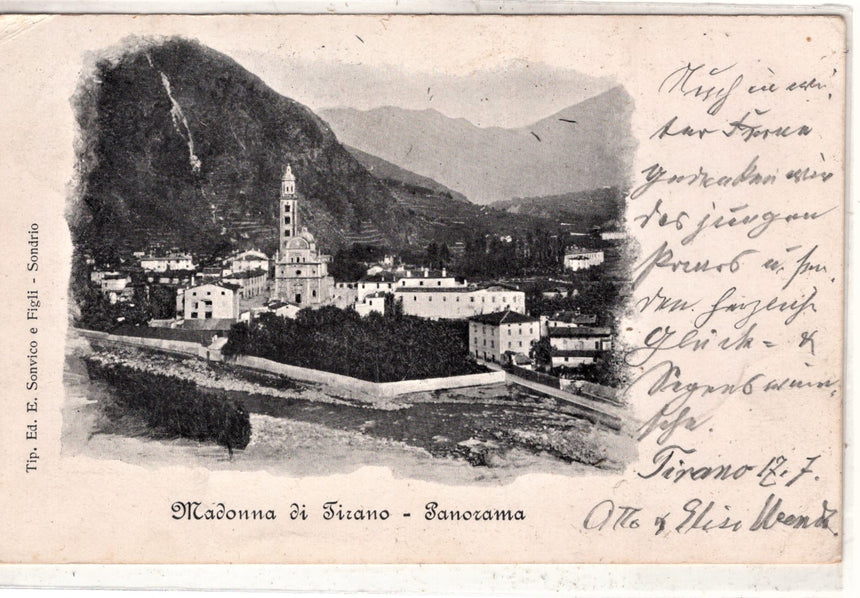 Tip. Ed. E. Sonvico e Figli - Sondrio
Madonna di Tirano - Panorama
Auch in wei-
ter Ferne
gedenken wir
des jungen
Paares u. sen-
den herzlich
Glück- &
Segenswün-
sche.
Tirano 17. 7.
Otto & Elise Wendt